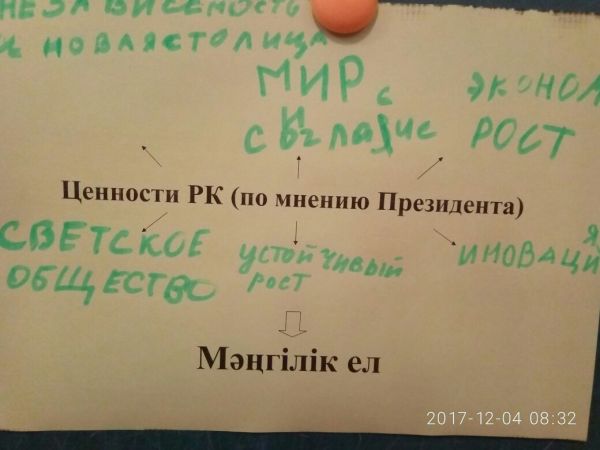 НЕЗАВИСЕМОСТЬ
И НОВАЯ СТОЛИЦА
МИР
И
СОГЛАСИЕ
ЭКОНОМ
РОСТ
Ценности РК (по мнению Президента)
СВЕТСКОЕ
ОБЩЕСТВО
УСТОЙЧИВЫЙ
РОСТ
ИНОВАЦИЯ
Мәңгілік ел
2017-12-04 08:32